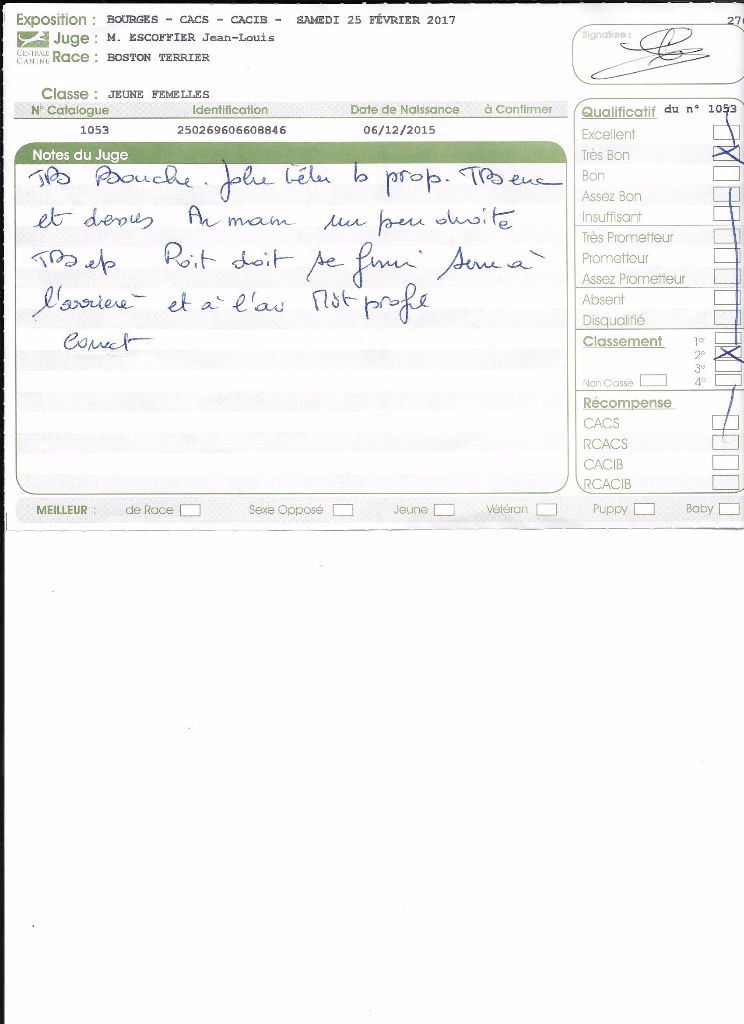 Exposition : BOURGES - CACS - CACIB - SAMEDI 25 FÉVRIER 2017
Juge : M. ESCOFFIER Jean-Louis
CENTRALE CANINE
Race : BOSTON TERRIER
Signature :
Classe : JEUNE FEMELLES
N° Catalogue Identification Date de Naissance à Confirmer
1053 250269606608846 06/12/2015
Notes du Juge
TB Bouche. Jolie b prop. TB enc
et dessus main un peu droite
TB ep doit se finir à
l'arriere et à l'av profil
Correct
Qualificatif du n° 1053
Excellent
Très Bon
Bon
Assez Bon
Insuffisant
Très Prometteur
Prometteur
Assez Prometteur
Absent
Disqualifié
Classement 1er
2e
3e
Non Classé 4e
Récompense
CACS
RCACS
CACIB
RCACIB
MEILLEUR : de Race Sexe Opposé Jeune Vétéran Puppy Baby